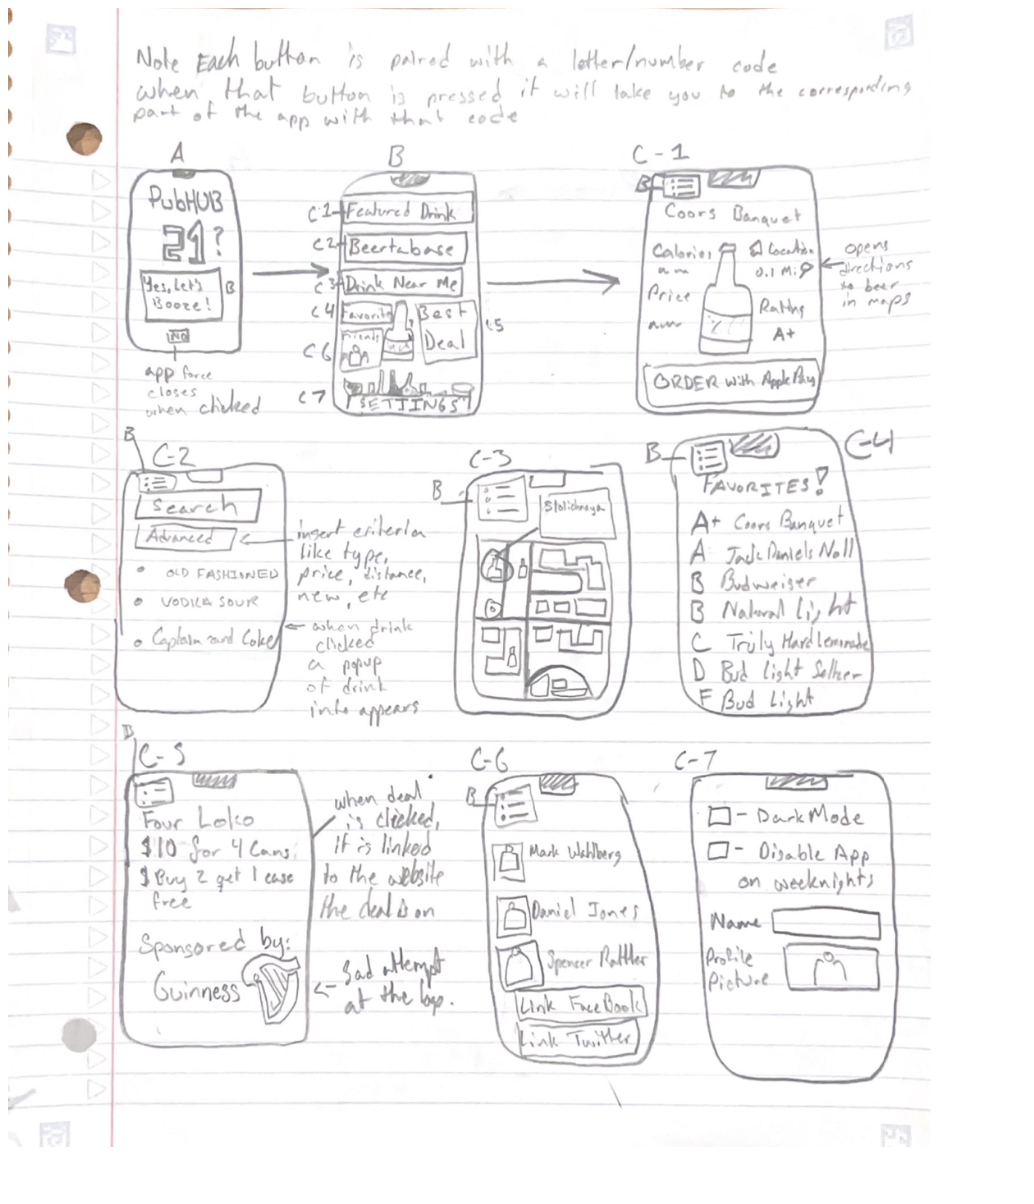 Note Each button is paired with a letter/number code
when that button is pressed it will take you to the corresponding
part of the app with that code
A
PubHUB
21?
Yes, Let's
Booze!
B
No
app force
closes
when clicked
B
C-1
Featured Drink
C2
Beertabase
C3
Drink Near Me
C4
Favorite
Best
Deal
C5
C6
Friends
C7
SETTINGS
C-1
B
Coors Banquet
Calories
Location
0.1 Mi
Price
Rating
A+
ORDER with Apple Pay
opens
directions
to beer
in maps
B
C-2
Search
Advanced
OLD FASHIONED
VODKA SOUR
Captain and Coke
insert criteria
like type,
price, distance,
new, etc
when drink
clicked
a popup
of drink
info appears
C-3
B
Stolichnaya
B
C-4
FAVORITES!
A+ Coors Banquet
A Jack Daniels No11
B Budweiser
B Natural Light
C Truly Hard Lemonade
D Bud Light Seltzer
F Bud Light
B
C-5
Four Loko
$10 for 4 Cans
$ Buy 2 get 1 case
free
Sponsored by:
Guinness
when deal
is clicked,
it is linked
to the website
the deal is on
Sad attempt
at the logo.
C-6
B
Mark Wahlberg
Daniel Jones
Spencer Rattler
Link FaceBook
Link Twitter
C-7
- Dark Mode
- Disable App
on weeknights
Name
Profile
Picture